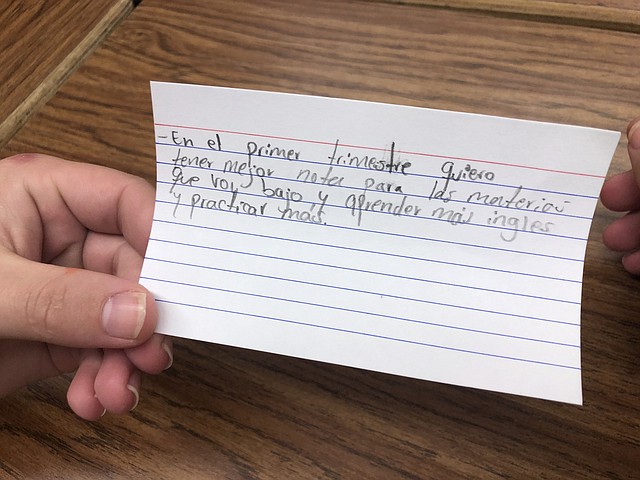 - En el primer trimestre quiero
tener mejor notas para las materias
que voy bajo y aprender más ingles
y practicar más.